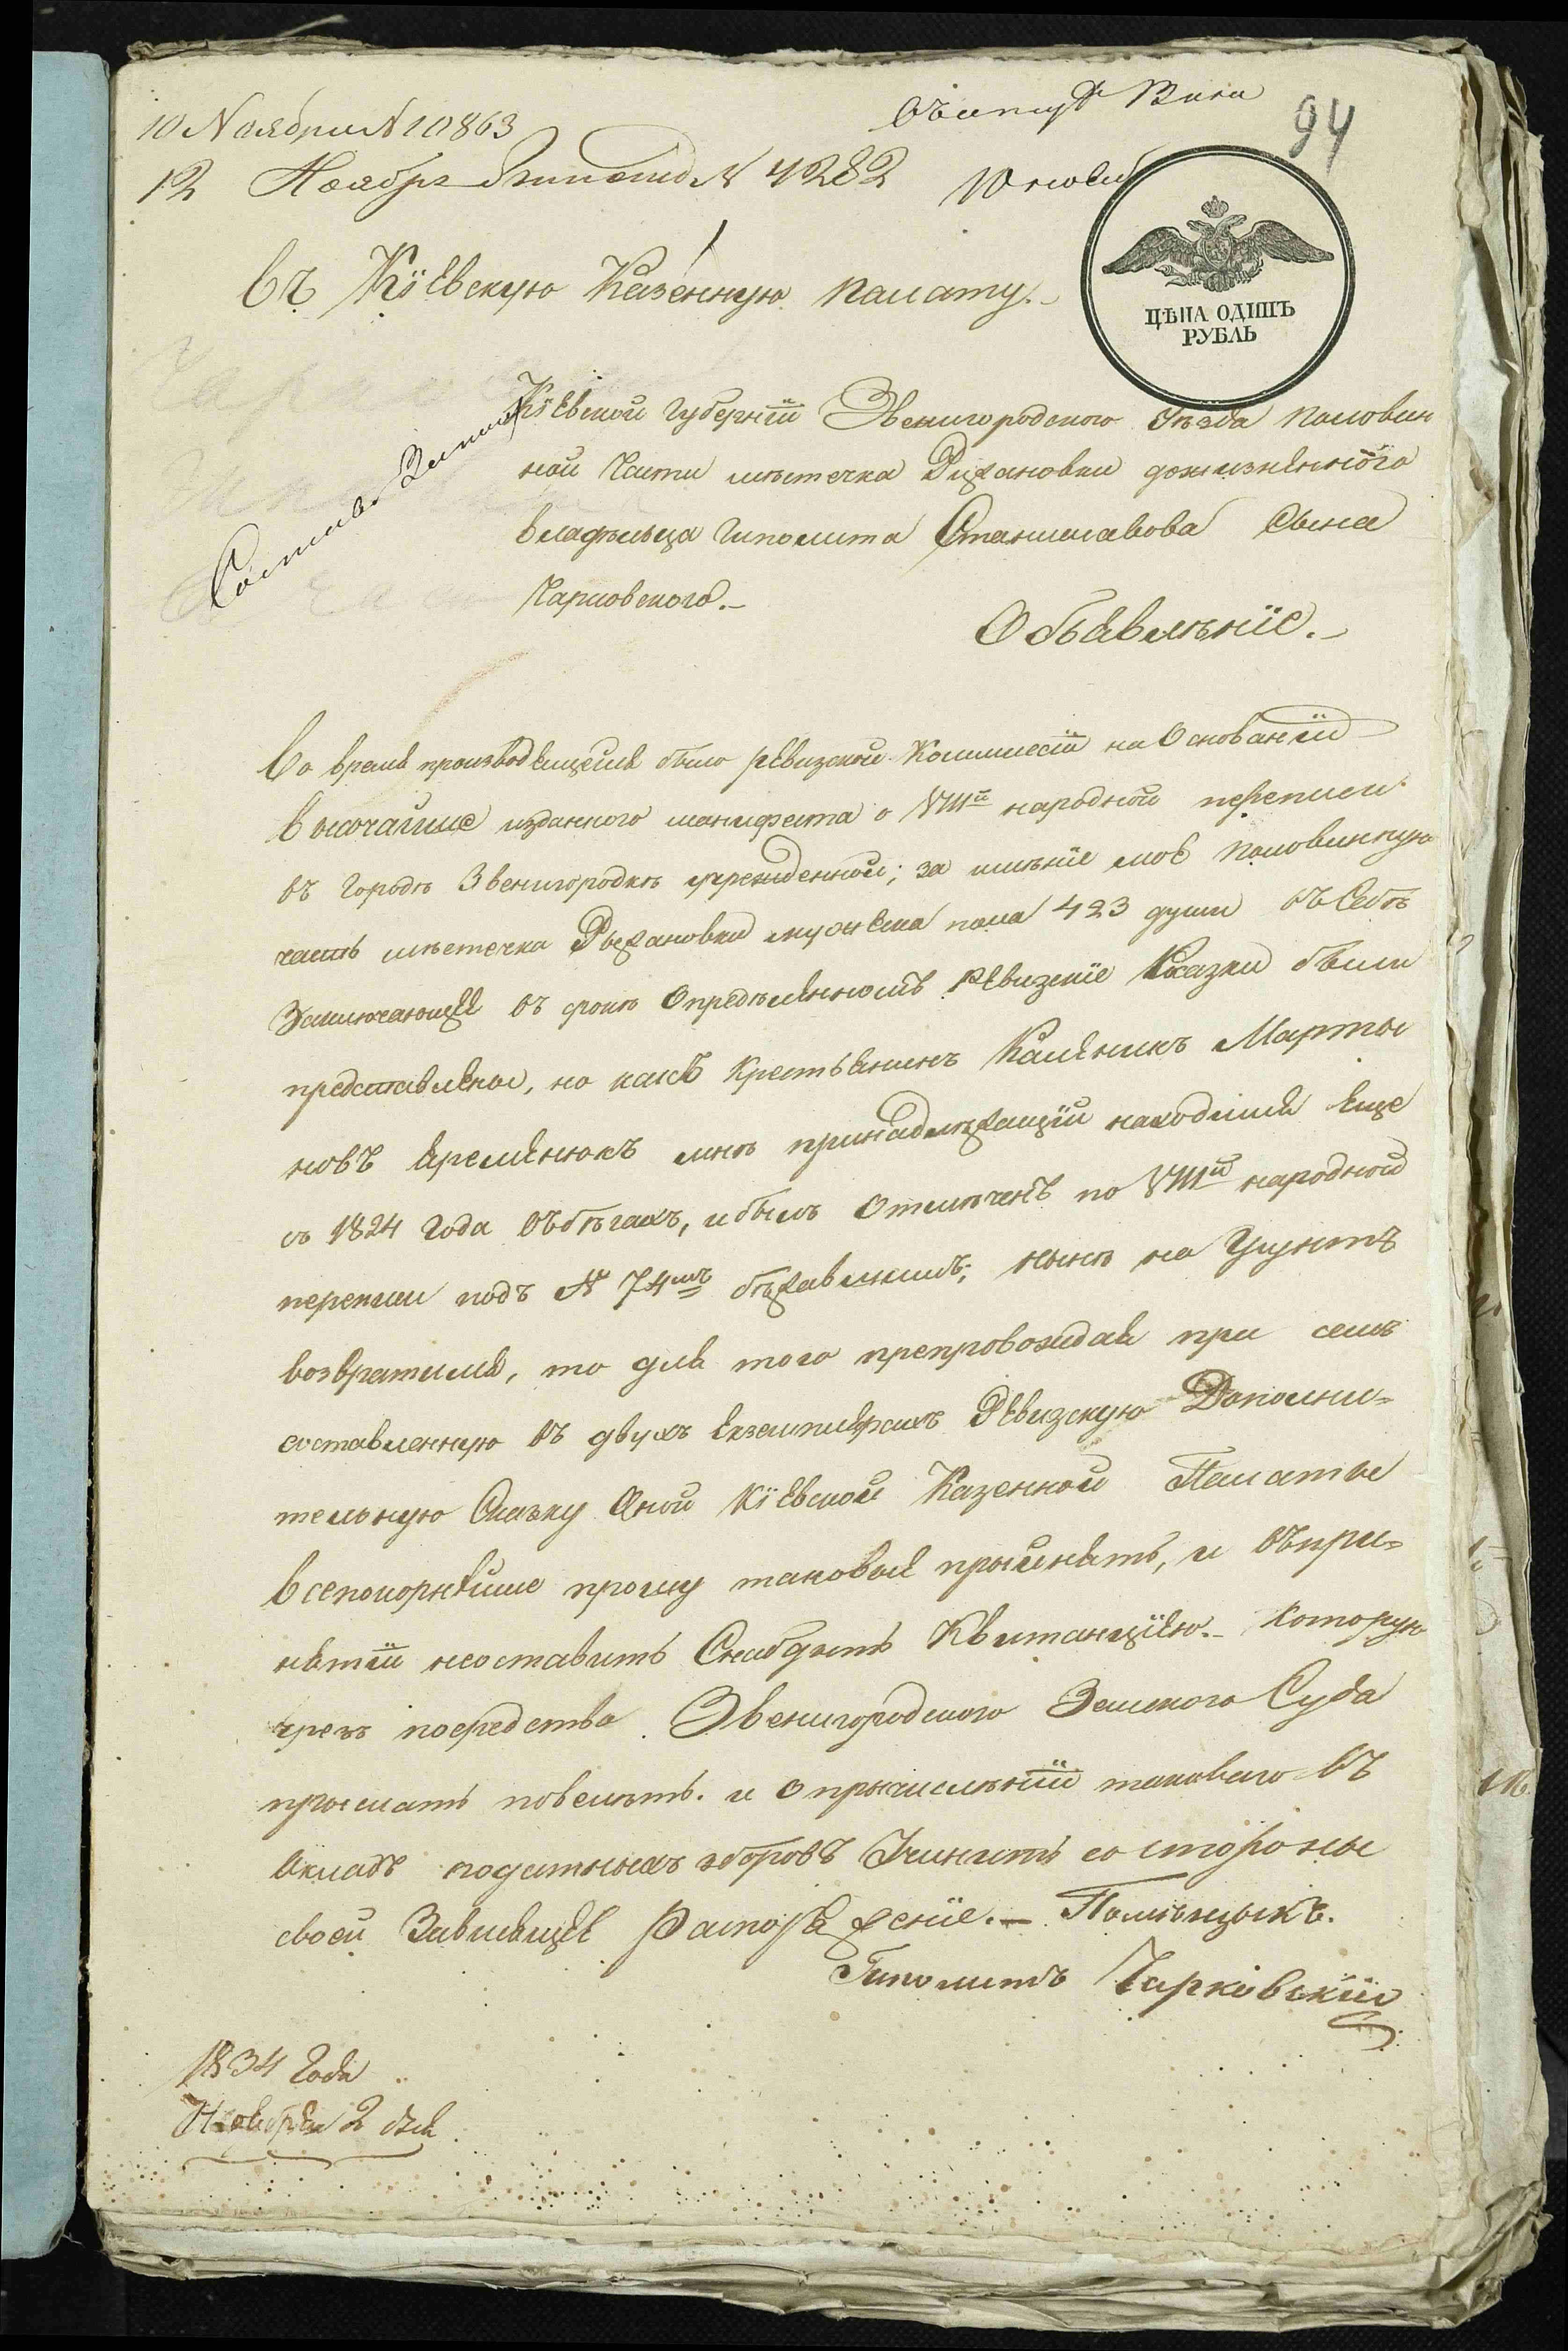 94
10 Ноября № 10863
12 Ноябр № 4282
Въ Кіевскую Казенную Палату.
ЦѢНА ОДИНЪ
РУБЛЬ
Кіевской Губерніи Звенигородского Уѣзда половин
ной Части мѣстечка Рижановки дожизненного
владѣльца Гиполита Станиславова Сына
Чарковского.
Объявленіе.
Во время производящейся было ревизской Коммиссіи на Основаніи
высочайше изданного манифеста о VIIIй народной переписи
въ Городѣ Звенигородкѣ учрежденной; за имѣніе моё половинную
часть мѣстечка Рыжановки мужеска пола 423 души въ Себѣ
Заключающее въ срокѣ Опредѣлённомъ Ревизскіе Сказки были
представлены, но какъ Крестьянинъ Каленикъ Марты
новъ Яременюкъ мнѣ принадлежащій находился еще
съ 1824 Года въ бѣгахъ, и былъ отмѣченъ по VIIIй народной
переписи подъ № 74мъ бѣжавшимъ; нынѣ на Грунтъ
возвратился, то для того препровождая при семъ
составленную въ двухъ Екземплярахъ Ревизскую Дополни=
тельную Сказку Оной Кіевской Казенной Палаты
Всепокорнѣйше прошу таковыя принять, и въ при=
нятіи неоставить Снабдить Квитанціею. которую
чрезъ посредство Звенигородского Земского Суда
прыслать повелѣть. и о прычисленіи таковаго въ
Окладъ податныхъ зборовъ Учинить со стороны
своей Зависящее Распоряженіе. — Помѣщыкъ.
Гиполитъ Чарковскій
1834 Года
Ноября 2 дня